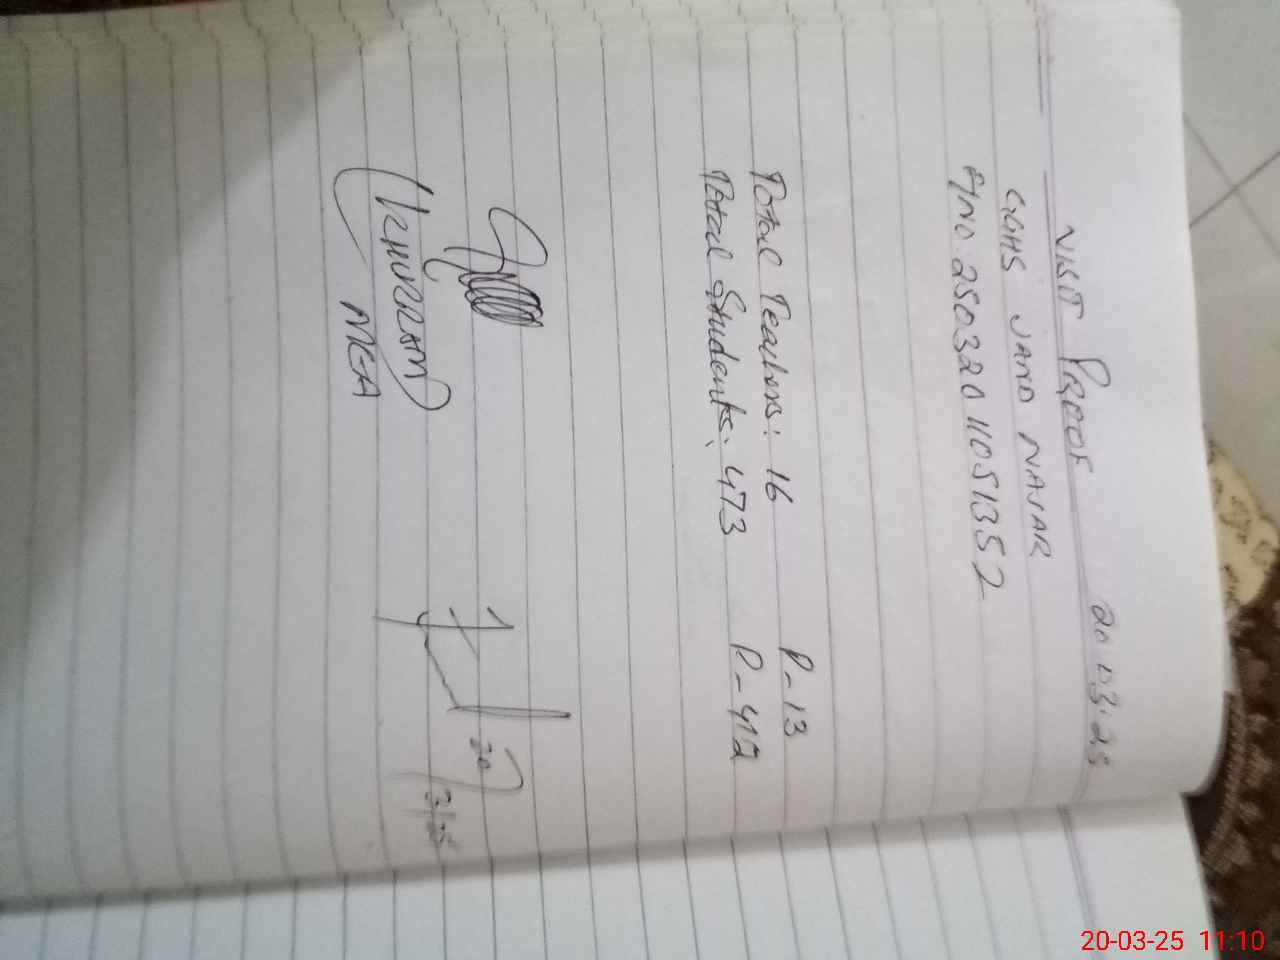 VISIT PROOF 20.03.25
GGHS JAND NAJAR
A/NO. 25032011051352
Total Teachers: 16 P-13
Total Students: 473 P-412
(KHURRAM)
MEA
20/3/25
20-03-25 11:10